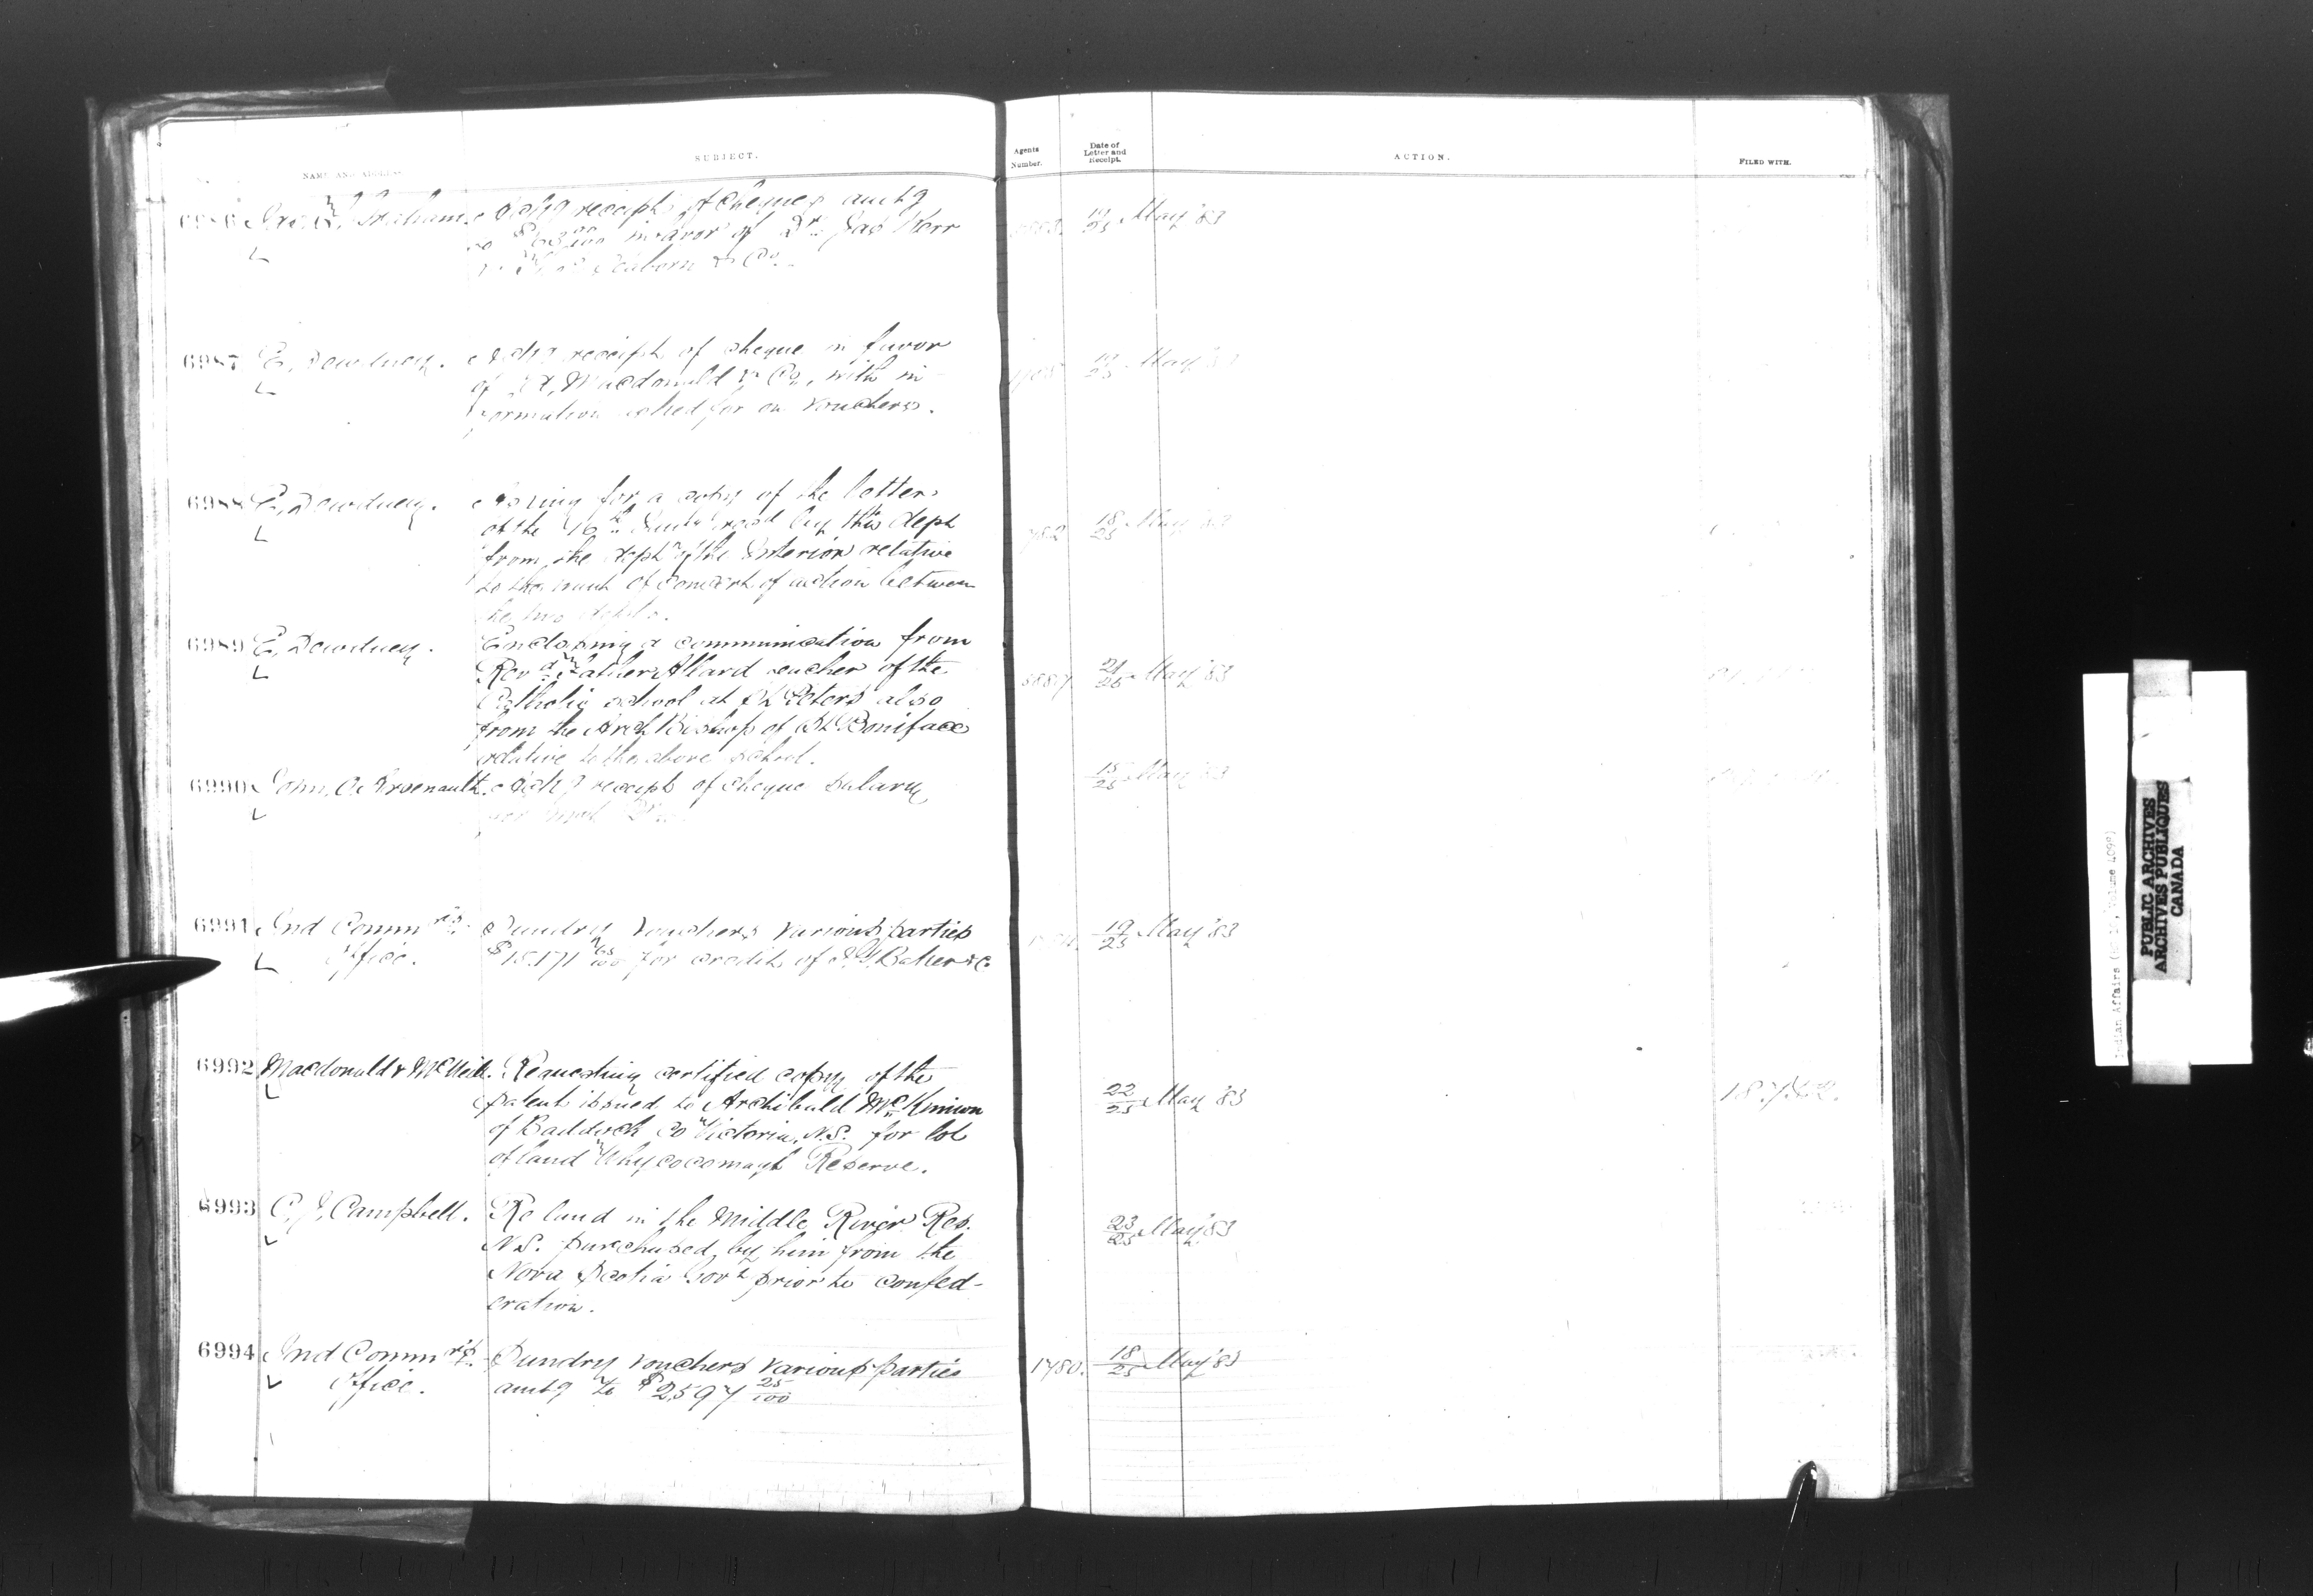 NAME AND ADDRESS
SUBJECT.
Agents Number.
Date of Letter and Receipt.
ACTION.
FILED WITH.
6986 Graham. Ackg receipt of cheques amtg
to $63 00/100 in favor of Dr. Jas Kerr
& Co.
19/25 May '83
6987 E. Dewdney. Ackg receipt of cheque in favor
of A. Macdonald & Co, with in-
formation asked for on vouchers.
19/25 May '83
6988 E. Dewdney. Asking for a copy of the letter
of the 16th recd by this dept
from the dept of the Interior relative
to the want of concert of action between
the two depts.
18/25 May '83
6989 E. Dewdney. Enclosing a communication from
Revd Father Allard teacher of the
Catholic school at St Peters also
from the Arch Bishop of St Boniface
relative to the above school.
21/25 May '83
6990 John O. Arsenault. Ackg receipt of cheque salary
15/25 May '83
6991 Ind Commrs Office. Sundry vouchers various parties
$15.171 65/100 for credit of I. G. Baker & Co
19/25 May '83
6992 Macdonald & McNeil. Requesting certified copy of the
patent issued to Archibald McKinnon
of Baddeck Co Victoria, N.S. for lot
of land Whycocomagh Reserve.
22/25 May '83
6993 C. J. Campbell. Re land in the Middle River Res.
N.S. purchased by him from the
Nova Scotia Govt prior to confed-
eration.
23/25 May '83
6994 Ind Commrs Office. Sundry vouchers various parties
amtg to $2.597 25/100
1780. 18/25 May '83
PUBLIC ARCHIVES
ARCHIVES PUBLIQUES
CANADA